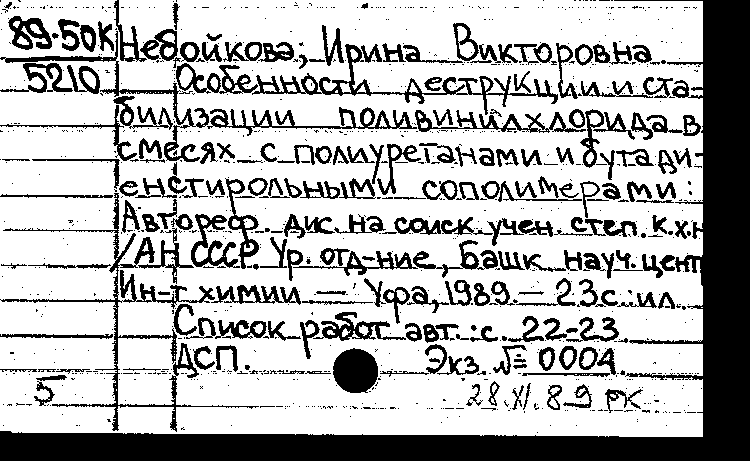 89-50К
5210
Небойкова, Ирина Викторовна
Особенности деструкции и ста-
билизации поливинилхлорида в
смесях с полиуретанами и бутади-
енстирольными сополимерами:
Автореф. дис. на соиск. учен. степ. к.х.н
/АН СССР. Ур. отд-ние, Башк. науч. цент
Ин-т химии. — Уфа, 1989. — 23 с.: ил.
Список работ авт.: с. 22-23
ДСП. Экз. № 0004
5
28.XI.89 РК